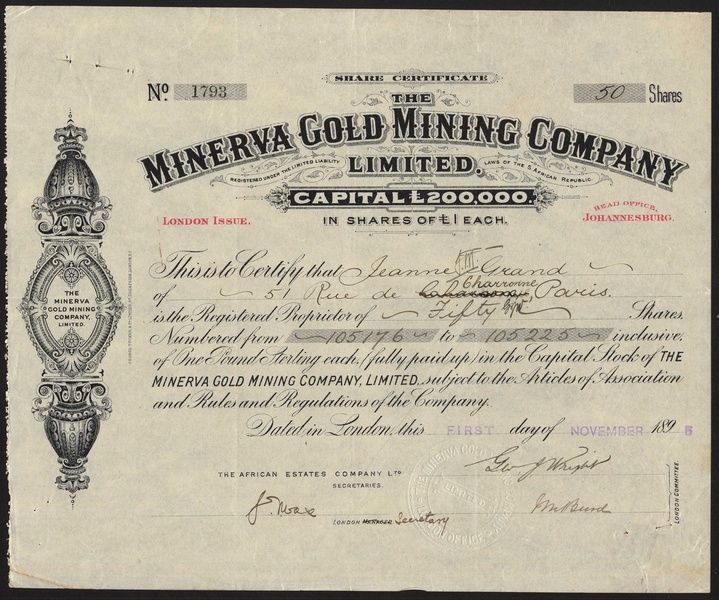 SHARE CERTIFICATE
No. 1793
50 Shares
THE
MINERVA GOLD MINING COMPANY
LIMITED.
REGISTERED UNDER THE LIMITED LIABILITY LAWS OF THE S. AFRICAN REPUBLIC.
CAPITAL £200,000.
IN SHARES OF £1 EACH.
LONDON ISSUE.
HEAD OFFICE,
JOHANNESBURG.
This is to Certify that Jeanne Grand
of 51 Rue de Charronne Paris.
is the Registered Proprietor of Fifty Shares.
Numbered from 105176 to 105225 inclusive,
of One Pound Sterling each, (fully paid up) in the Capital Stock of THE
MINERVA GOLD MINING COMPANY, LIMITED, subject to the Articles of Association
and Rules and Regulations of the Company.
Dated in London, this FIRST day of NOVEMBER 1895
THE
MINERVA
GOLD MINING
COMPANY,
LIMITED.
THE AFRICAN ESTATES COMPANY LTD
SECRETARIES.
LONDON MANAGER Secretary
Geo J Wright
LONDON COMMITTEE.